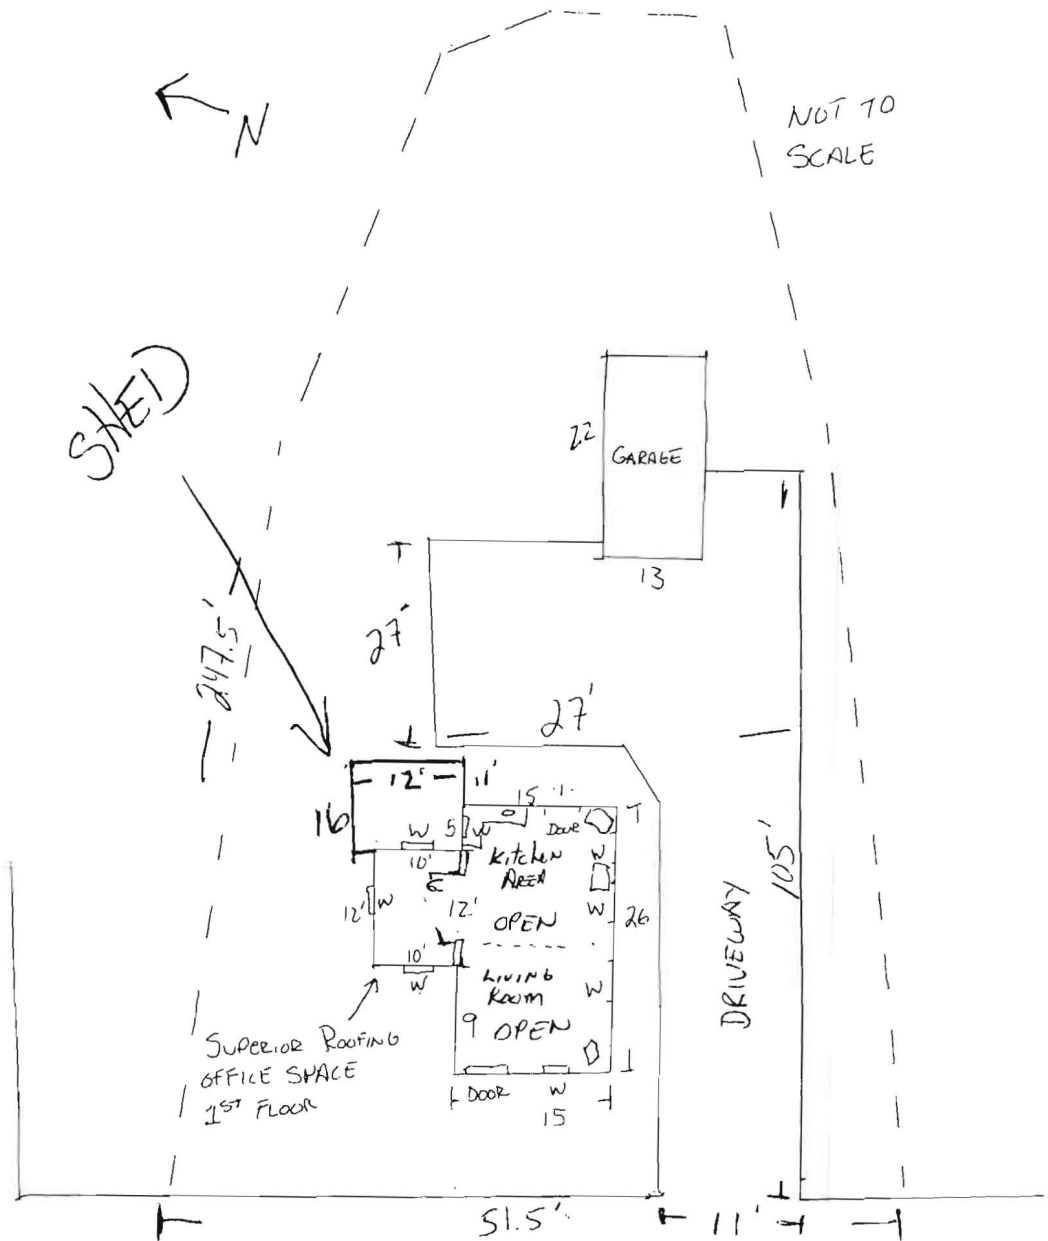 N
NOT TO
SCALE
SHED
22
GARAGE
13
27'
247.5'
27'
12'
11'
16
15
W
5
W
DOOR
10'
KITCHEN
AREA
W
12'
W
12'
OPEN
W
26
105'
DRIVEWAY
10'
W
LIVING
ROOM
W
9
OPEN
SUPERIOR ROOFING
OFFICE SPACE
1ST FLOOR
DOOR
W
15
51.5'
11'